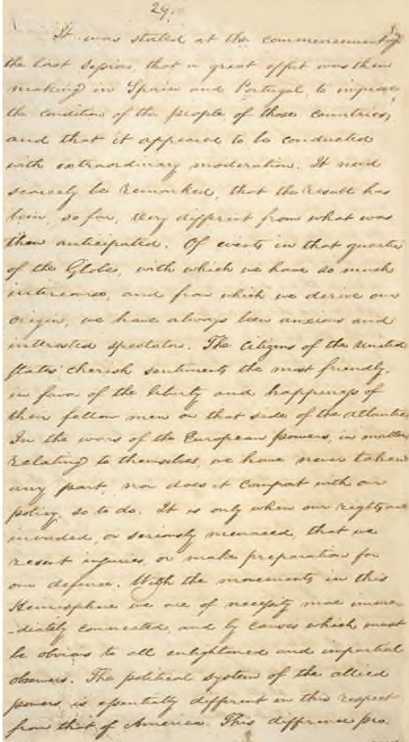 29.
It was stated at the commencement of
the last session, that a great effort was then
making in Spain and Portugal to improve
the condition of the people of those countries;
and that it appeared to be conducted
with extraordinary moderation. It need
scarcely be remarked, that the result has
been, so far, very different from what was
then anticipated. Of events in that quarter
of the Globe, with which we have so much
intercourse, and from which we derive our
origin, we have always been anxious and
interested spectators. The Citizens of the United
States cherish sentiments the most friendly,
in favor of the liberty and happiness of
their fellow men on that side of the Atlantic.
In the wars of the European powers, in matters
relating to themselves, we have never taken
any part, nor does it comport with our
policy, so to do. It is only when our rights are
invaded, or seriously menaced, that we
resent injuries, or make preparation for
our defense. With the movements in this
Hemisphere we are of necessity more imme-
-diately connected, and by causes which must
be obvious to all enlightened and impartial
observers. The political system of the allied
powers, is essentially different in this respect
from that of America. This difference pro.